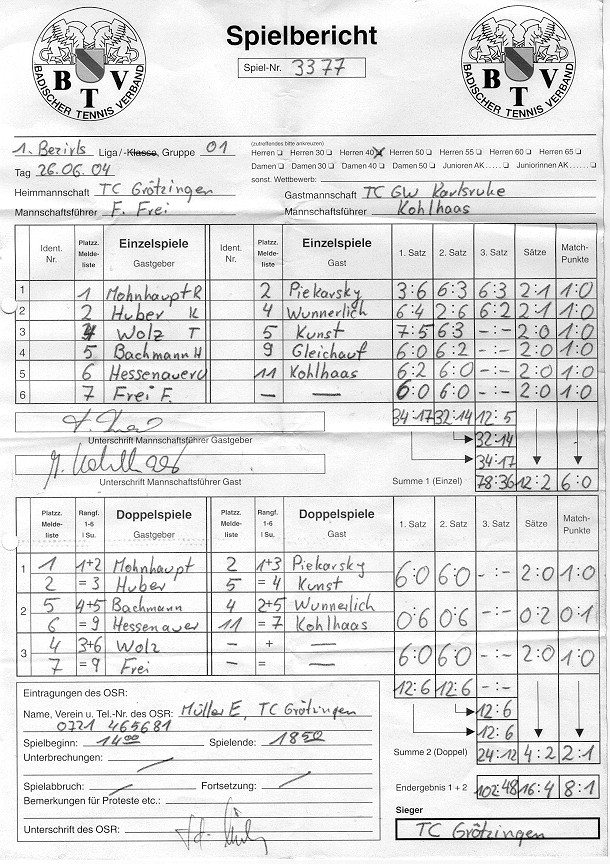 BADISCHER TENNIS VERBAND
BTV
Spielbericht
Spiel-Nr. 3377
BADISCHER TENNIS VERBAND
BTV
1. Bezirks Liga / -Klasse, Gruppe 01
(zutreffendes bitte ankreuzen)
Herren ❏ Herren 30 ❏ Herren 40 ☒ Herren 50 ❏ Herren 55 ❏ Herren 60 ❏ Herren 65 ❏
Tag 26.06.04
Damen ❏ Damen 30 ❏ Damen 40 ❏ Damen 50 ❏ Junioren AK..... ❏ Juniorinnen AK...... ❏
sonst. Wettbewerb:
Heimmannschaft TC Grötzingen Gastmannschaft TC GW Karlsruhe
Mannschaftsführer F. Frei Mannschaftsführer Kohlhaas
Ident. Nr. Platzz. Melde-liste Einzelspiele Gastgeber Ident. Nr. Platzz. Melde-liste Einzelspiele Gast 1. Satz 2. Satz 3. Satz Sätze Match-Punkte
1 1 Mohnhaupt R 2 Piekarsky 3:6 6:3 6:3 2:1 1:0
2 2 Huber K 4 Wunnerlich 6:4 2:6 6:2 2:1 1:0
3 4 Wolz T 5 Kunst 7:5 6:3 -:- 2:0 1:0
4 5 Bachmann H 9 Gleichauf 6:0 6:2 -:- 2:0 1:0
5 6 Hessenauer U 11 Kohlhaas 6:2 6:0 -:- 2:0 1:0
6 7 Frei F. — — 6:0 6:0 -:- 2:0 1:0
34:17 32:14 12:5
Unterschrift Mannschaftsführer Gastgeber
32:14
34:17
Unterschrift Mannschaftsführer Gast
Summe 1 (Einzel) 78:36 12:2 6:0
Platzz. Melde-liste Rangf. 1-6 I Su. Doppelspiele Gastgeber Platzz. Melde-liste Rangf. 1-6 I Su. Doppelspiele Gast 1. Satz 2. Satz 3. Satz Sätze Match-Punkte
1 1 1+2 Mohnhaupt 2 1+3 Piekarsky
2 = 3 Huber 5 = 4 Kunst 6:0 6:0 -:- 2:0 1:0
2 5 4+5 Bachmann 4 2+5 Wunnerlich
6 = 9 Hessenauer 11 = 7 Kohlhaas 0:6 0:6 -:- 0:2 0:1
3 4 3+6 Wolz — + —
7 = 9 Frei — = — 6:0 6:0 -:- 2:0 1:0
12:6 12:6 -:-
Eintragungen des OSR:
12:6
Name, Verein u. Tel.-Nr. des OSR: Müller E, TC Grötzingen
0721 465681
12:6
Spielbeginn: 14 00 Spielende: 18 50
Summe 2 (Doppel) 24:12 4:2 2:1
Unterbrechungen:
Spielabbruch: Fortsetzung:
Endergebnis 1 + 2 102:48 16:4 8:1
Bemerkungen für Proteste etc.:
Sieger
Unterschrift des OSR:
TC Grötzingen